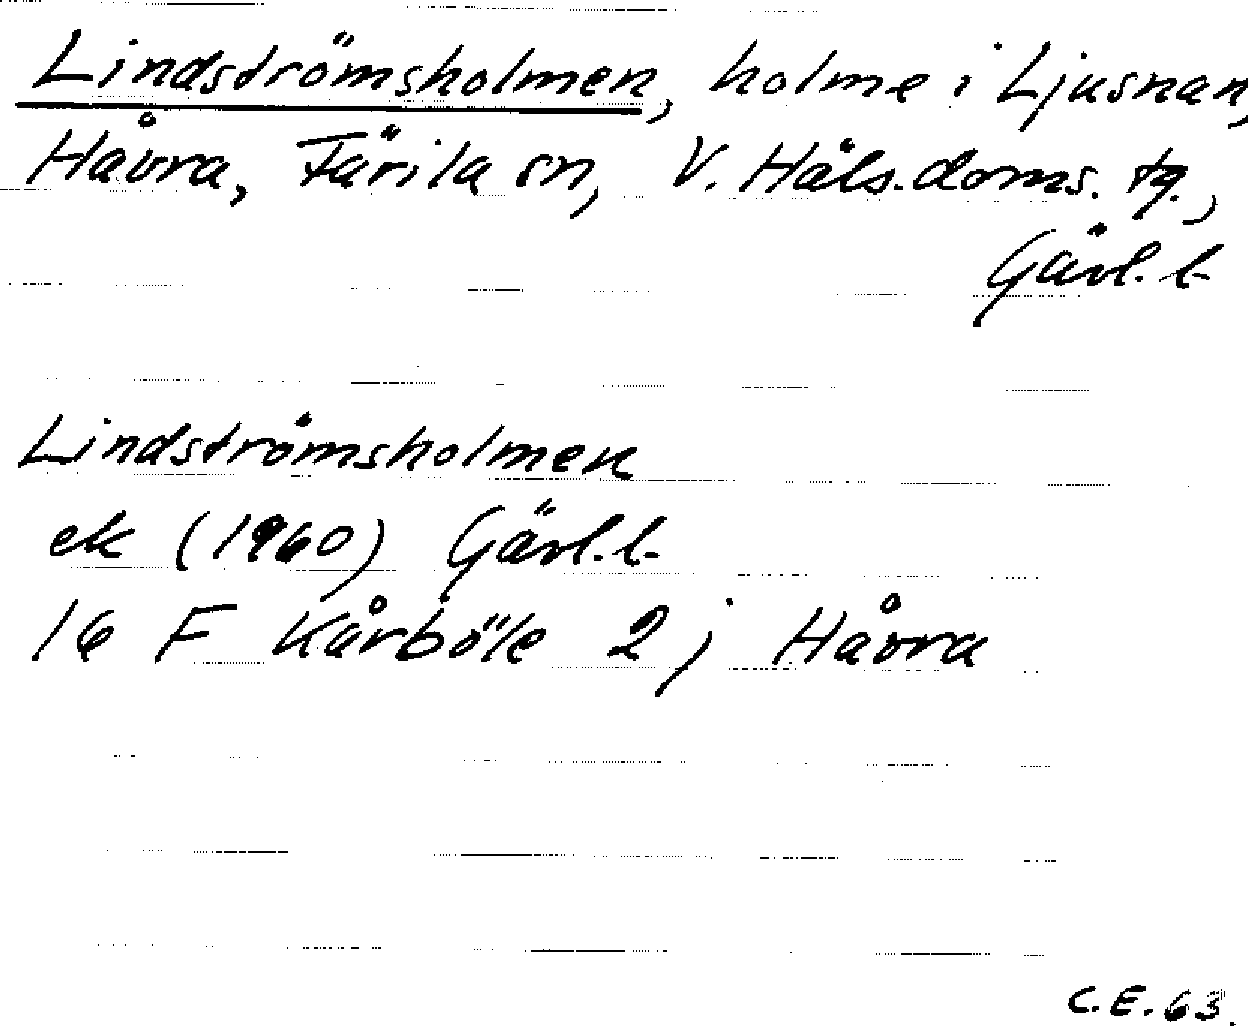 Lindströmsholmen, holme i Ljusnan,
Håvra, Färila sn, V. Häls. doms. tg.,
Gävl. l.
Lindströmsholmen
ek (1960) Gävl. l.
16 F Kårböle 2 j Håvra
C.E. 63.